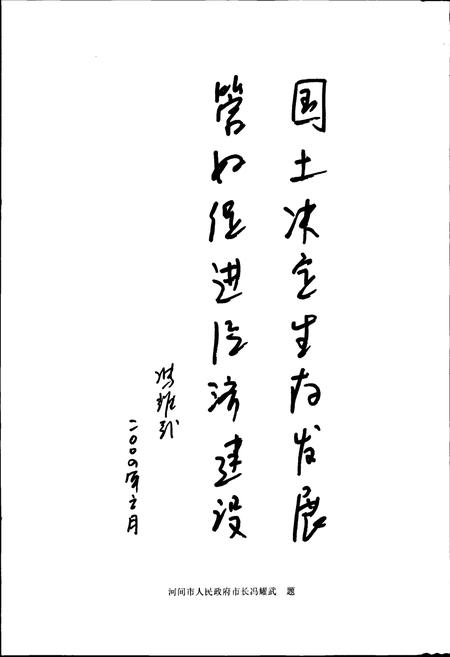 国土决定生存发展
管好促进经济建设
冯耀武
二〇〇四年三月
河间市人民政府市长冯耀武 题